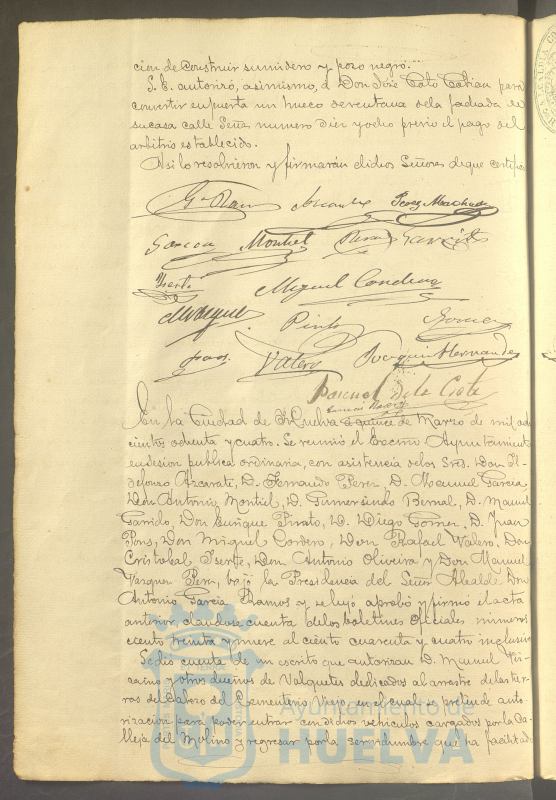 cion de construir sumidero y pozo negro.
S. E. autorizó, asimismo, á Don José Coto Cobian para
convertir en puerta un hueco de ventana de la fachada de
su casa calle Señas numero diez y ocho previo el pago del
arbitrio establecido.
Asi lo resolvieron y firmarán dichos Señores de que certifico
Gª Ramos Perez Machado
Garcia Montiel Garrido
Yserte
Miguel Cordero
M. Vazquez Pinto Gomez
Pons Valero Joaquin Hernandez
Pascual de la Corte
En la Ciudad de Huelva á quince de Marzo de mil ocho
cientos ochenta y cuatro. Se reunió el Excmo Ayuntamiento
en sesion publica ordinaria, con asistencia de los Sres. Don Il
defonso Azcarate, D. Fernando Perez D. Manuel Garcia
Don Antonio Montiel, D. Gumersindo Bernal, D. Manuel
Garrido, Don Enrique Pinto, D. Diego Gomez, D. Juan
Pons, Don Miguel Cordero, Don Rafael Valero, Don
Cristobal Yserte, Don Antonio Oliveira y Don Manuel
Vazquez Perez, bajo la Presidencia del Señor Alcalde Don
Antonio Garcia Ramos y se leyó aprobó y firmó el acta
anterior, dandose cuenta de los boletines oficiales numeros
ciento treinta y nueve al ciento cuarenta y cuatro inclusive
Se dió cuenta de un escrito que autorizan D. Manuel Viz
caino y otros dueños de Valquetes dedicados al arrastre de las tier
ras del Cabezo del Cementerio Viejo, en el cual solicitan de auto
rizacion para poder entrar con dichos vehiculos cargados por la Ca
lleja del Molino y regresar por la servidumbre que ha facilitado
Ayuntamiento de
HUELVA